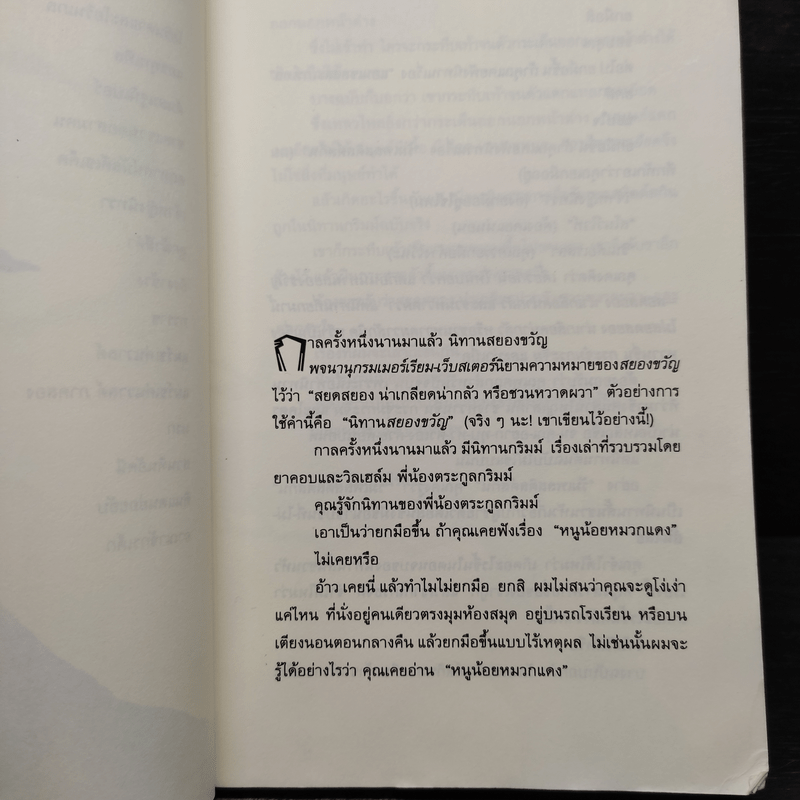 กาลครั้งหนึ่งนานมาแล้ว นิทานสยองขวัญ
พจนานุกรมเมอร์เรียม-เว็บสเตอร์นิยามความหมายของสยองขวัญ
ไว้ว่า “สยดสยอง น่าเกลียดน่ากลัว หรือชวนหวาดผวา” ตัวอย่างการ
ใช้คำนี้คือ “นิทานสยองขวัญ” (จริง ๆ นะ! เขาเขียนไว้อย่างนี้!)
กาลครั้งหนึ่งนานมาแล้ว มีนิทานกริมม์ เรื่องเล่าที่รวบรวมโดย
ยาคอบและวิลเฮล์ม พี่น้องตระกูลกริมม์
คุณรู้จักนิทานของพี่น้องตระกูลกริมม์
เอาเป็นว่ายกมือขึ้น ถ้าคุณเคยฟังเรื่อง “หนูน้อยหมวกแดง”
ไม่เคยหรือ
อ้าว เคยนี่ แล้วทำไมไม่ยกมือ ยกสิ ผมไม่สนว่าคุณจะดูโง่เง่า
แค่ไหน ที่นั่งอยู่คนเดียวตรงมุมห้องสมุด อยู่บนรถโรงเรียน หรือบน
เตียงนอนตอนกลางคืน แล้วยกมือขึ้นแบบไร้เหตุผล ไม่เช่นนั้นผมจะ
รู้ได้อย่างไรว่า คุณเคยอ่าน “หนูน้อยหมวกแดง”